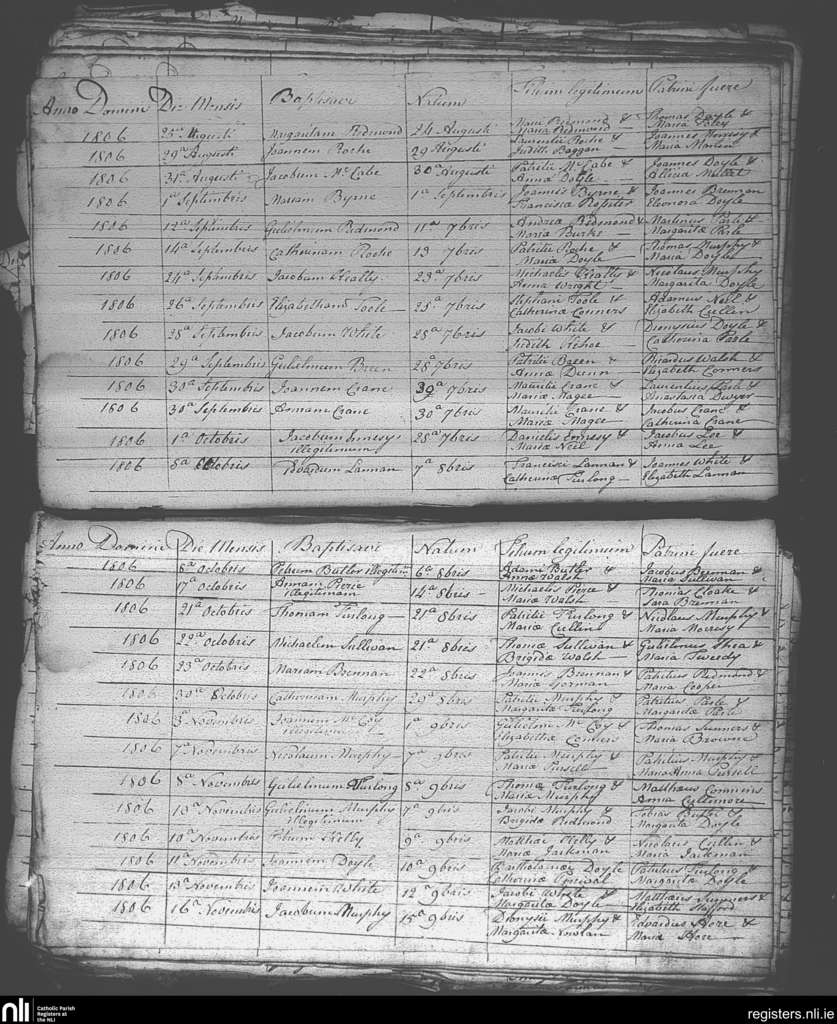 Anno Domini Die Mensis Baptisavi Natum Filium legitimum Patrini fuere
1806 25a Augusti Margaritam Redmond 24 Augusti Redmond & Maria Redmond Thomas Doyle & Maria
1806 29a Augusti Joannem Roche 29 Augusti Laurentii Roche & Judith Baggan Joannes & Maria
1806 31a Augusti Jacobum McCabe 30a Augusti Patritii McCabe & Anna Doyle Joannes Doyle & Alicia
1806 1a Septembris Mariam Byrne 1a Septembris Joannis Byrne & Francisca Joannes Brennan Eleonora Doyle
1806 12a Septembris Gulielmum Redmond 11a 7bris Andrea Redmond & Maria Burke Martinus & Margarita
1806 14a Septembris Catharinam Roche 13 7bris Patritii Roche & Maria Doyle Thomas Murphy & Maria Doyle
1806 24a Septembris Jacobum 23a 7bris Michaelis & Anna Wright Nicolaus Murphy Margarita Doyle
1806 26a Septembris Elizabetham Toole 25a 7bris Stephani Toole & Catherina Conners Adamus Neil & Elizabeth Cullen
1806 28a Septembris Jacobum White 28a 7bris Jacobi White & Judith Dionysius Doyle & Catherina
1806 29a Septembris Gulielmum Breen 28a 7bris Patritii Breen & Anna Dunn Ricardus Walsh & Elizabeth Conners
1806 30a Septembris Joannem Crane 30a 7bris Mauritii Crane & Maria Magee Laurentius & Anastasia Dwyer
1806 30a Septembris Annam Crane 30a 7bris Mauritii Crane & Maria Magee Jacobus Crane & Catherina Crane
1806 1a Octobris Jacobum illegitimum 28a 7bris Danielis & Maria Neil Jacobus Lee & Anna Lee
1806 8a Octobris Edvardum Lannan 7a 8bris Francisci Lannan & Catherina Furlong Joannes White & Elizabeth Lannan
Anno Domini Die Mensis Baptisavi Natum Filium legitimum Patrini fuere
1806 8a Octobris Petrum Butler illegitim 6a 8bris Adami Butler & Anna Walsh Jacobus Brennan & Maria Sullivan
1806 17a Octobris Annam illegitimam 14a 8bris Michaelis & Maria Walsh Thomas & Sara Brennan
1806 21a Octobris Thomam Furlong 21a 8bris Patritii Furlong & Maria Cullen Nicolaus Murphy & Maria
1806 22a Octobris Michaelem Sullivan 21a 8bris Thomae Sullivan & Brigida Walsh Gulielmus Shea & Maria Tweedy
1806 23a Octobris Mariam Brennan 22a 8bris Joannis Brennan & Maria Gorman Patritius Redmond & Maria Cooper
1806 30a 8ctobris Catherinam Murphy 29a 8bris Patritii Murphy & Margarita Furlong Patritius & Margarita
1806 Novembris Joannem McCoy 1a 9bris Gulielmi McCoy & Elizabetha Conners Thomas & Maria Browne
1806 7a Novembris Nicolaum Murphy 7a 9bris Patritii Murphy & Maria Pursell Patritius Murphy & Maria Anna Pursell
1806 8a Novembris Gulielmum Furlong 8a 9bris Thomae Furlong & Maria Murphy Matthaeus Connins Anna Cullemore
1806 10a Novembris Gulielmum Murphy illegitimum 7a 9bris Jacobi Murphy & Brigida Redmond Tobias Butler & Margarita Doyle
1806 10a Novembris Kelly 9a 9bris Kelly & Maria Jackman Nicolaus Cullen & Maria Jackman
1806 11a Novembris Joannem Doyle 10a 9bris Bartholamaei Doyle Catherina Patritius Furlong & Margarita Doyle
1806 13a Novembris Joannem White 12a 9bris Jacobi White & Margarita Doyle Matthaeus & Elizabeth
1806 16a Novembris Jacobum Murphy 15a 9bris Dionysii Murphy & Margarita Nowlan Edvardus Hore & Maria Hore
nli Catholic Parish Registers at the NLI
registers.nli.ie